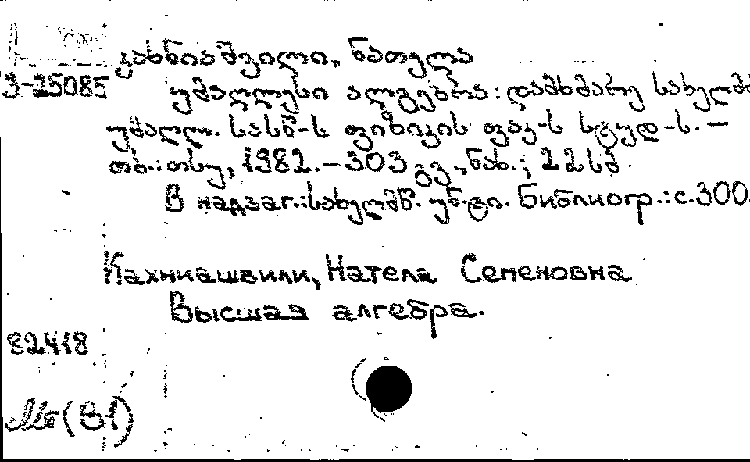 კახნიაშვილი, ნათელა
3-25085 უმაღლესი ალგებრა: დამხმარე სახელმ
უმაღლ. სასწ-ს ფიზიკის ფაკ-ს სტუდ-ს. —
თბ.: თსუ, 1982. — 303 გვ., ნახ.; 22 სმ
В надзаг.: სახელმწ. უნ-ტი. Библиогр.: с. 300.
Кахниашвили, Натела Семеновна
Высшая алгебра.
82418
(В1)